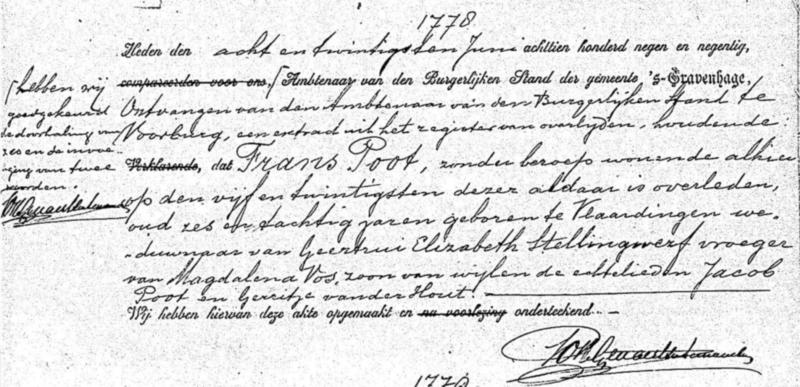 1778
Heden den acht en twintigsten Juni achttien honderd negen en negentig,
compareerden voor ons, Ambtenaar van den Burgerlijken Stand der gemeente 's-Gravenhage,
hebben wij
goedgekeurd
de doorhaling van
zes en de invoe
ging van twee
woorden.
Ontvangen van den Ambtenaar van den Burgerlijken Stand te
Voorburg, een extract uit het register van overlijden, houdende:
Verklarende, dat Frans Poot, zonder beroep wonende alhier
op den vijf en twintigsten dezer aldaar is overleden,
oud zes en tachtig jaren geboren te Vlaardingen we-
duwnaar van Geertrui Elizabeth Stellingwerf vroeger
van Magdalena Vos, zoon van wijlen de echtelieden Jacob
Poot en Gerritje van der Hout.
Wij hebben hiervan deze akte opgemaakt en na voorlezing onderteekend.